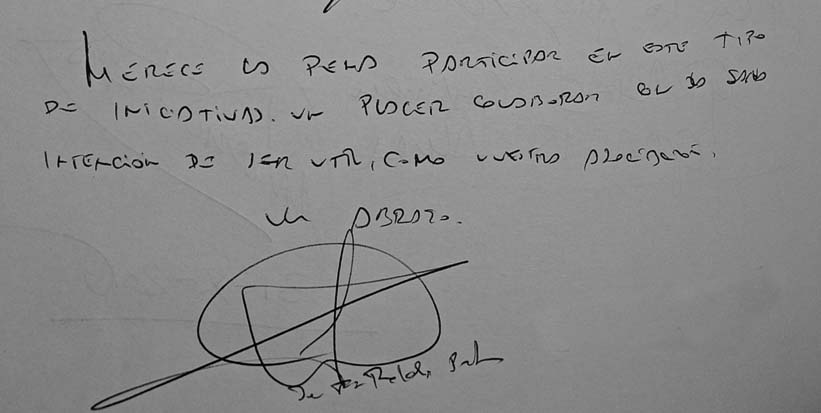 MERECE LA PENA PARTICIPAR EN ESTE TIPO
DE INICIATIVAS. UN PLACER COLABORAR EN LA SANA
INTENCIÓN DE SER UTIL, COMO VUESTRO
UN ABRAZO.